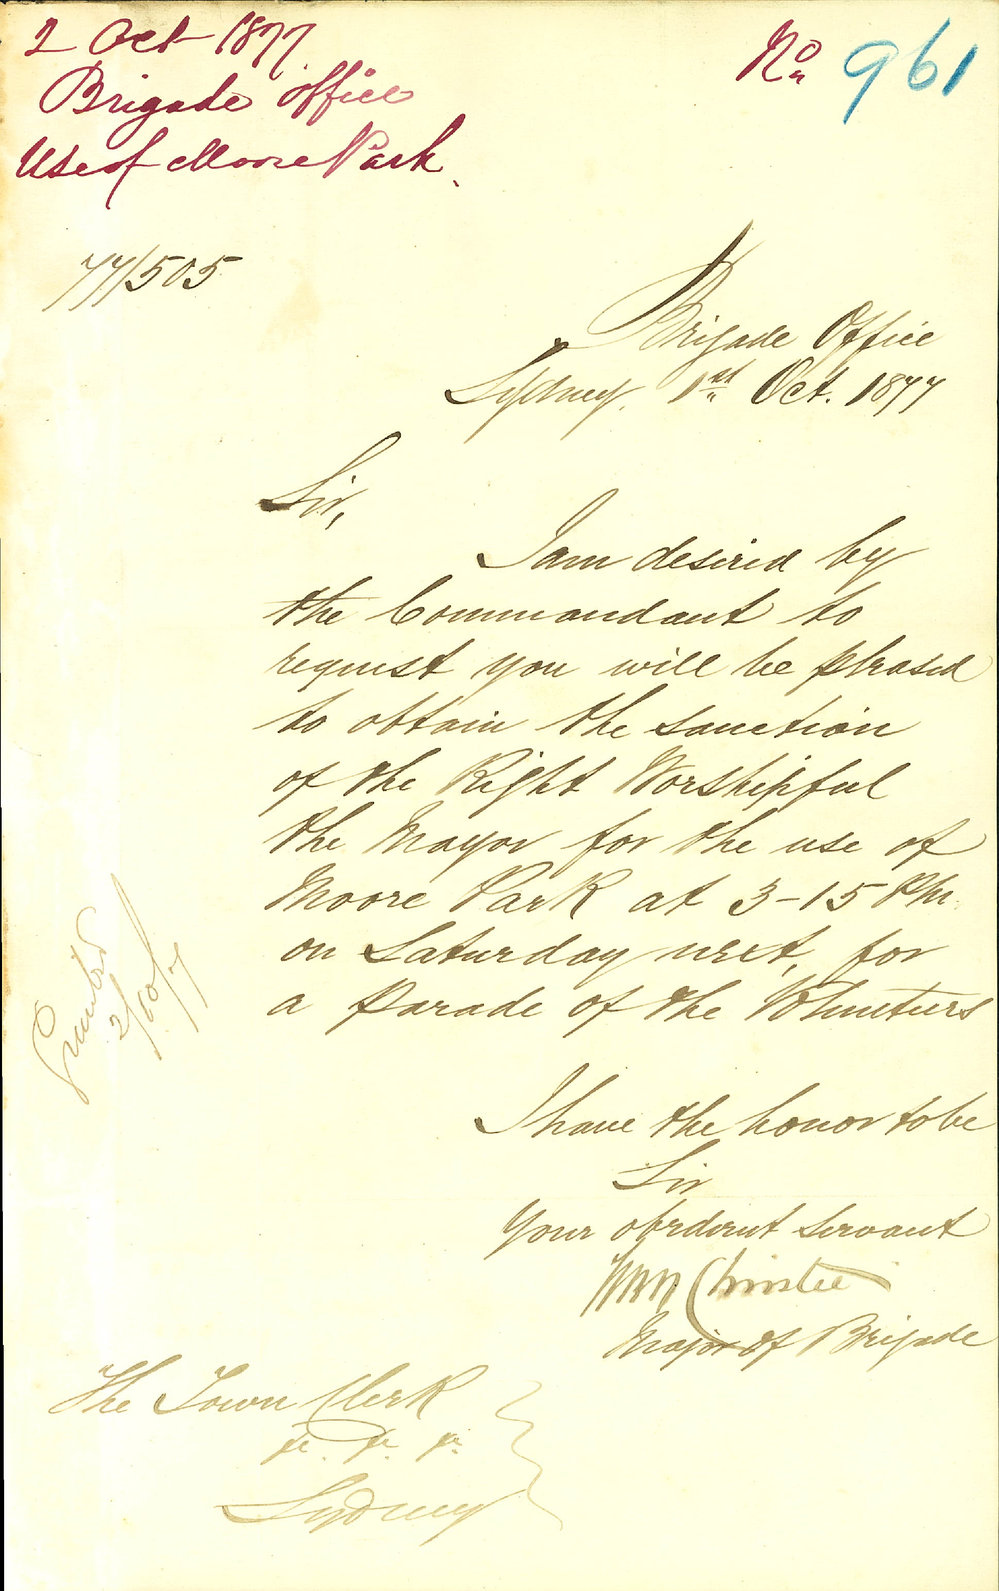 2 Oct 1877
Brigade Office
Use of Moore Park.
No 961
77/505
Brigade Office
Sydney. 1st Oct. 1877
Sir,
I am desired by
the Commandant to
request you will be pleased
to obtain the sanction
of the Right Worshipful
the Mayor for the use of
Moore Park at 3-15 PM.
on Saturday next, for
a Parade of the Volunteers
Granted
2/10/77
I have the honor to be
Sir
Your obedient servant
Christie
Major of Brigade
The Town Clerk
&c. &c. &c.
Sydney